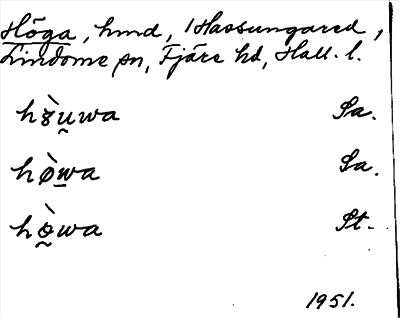 Höga, hmd, 1 Hassungared,
Lindome sn, Fjäre hd, Hall. l.
hɞ̀u̯wa Sa.
hø̀wa Sa.
hø̀wa St.
1951.